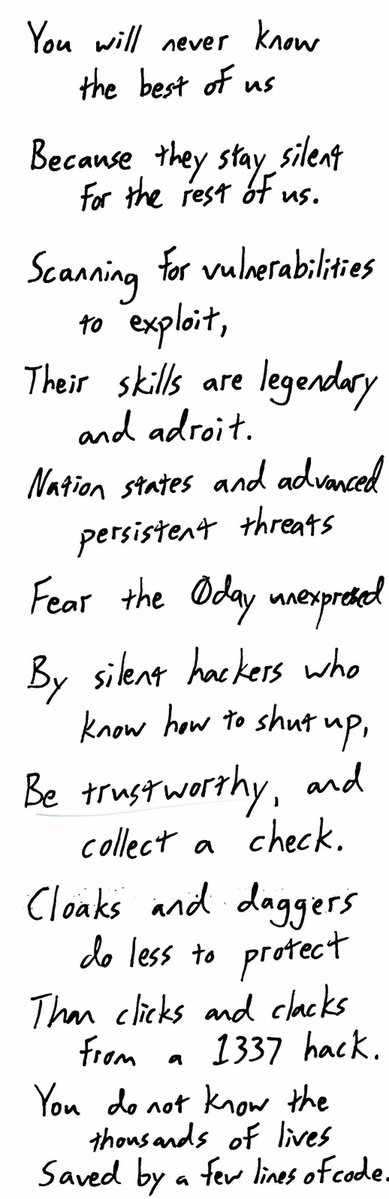 You will never know
the best of us
Because they stay silent
for the rest of us.
Scanning for vulnerabilities
to exploit,
Their skills are legendary
and adroit.
Nation states and advanced
persistent threats
Fear the 0day unexpressed
By silent hackers who
know how to shut up,
Be trustworthy, and
collect a check.
Cloaks and daggers
do less to protect
Than clicks and clacks
from a 1337 hack.
You do not know the
thousands of lives
Saved by a few lines of code.